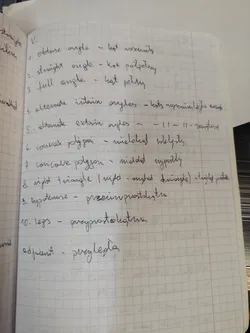 V.
1. obtuse angle - kąt rozwarty
2. straight angle - kąt półpełny
3. full angle - kąt pełny
4. alternate interior angles - kąty naprzemianległe
5. alternate exterior angles - - || - || -
6. convex polygon - wielokąt wypukły
7. concave polygon - wielokąt wklęsły
8. right triangle (right-angled triangle)
9. hypotenuse - przeciwprostokątna
10. legs - przyprostokątna
adjacent - przyległa